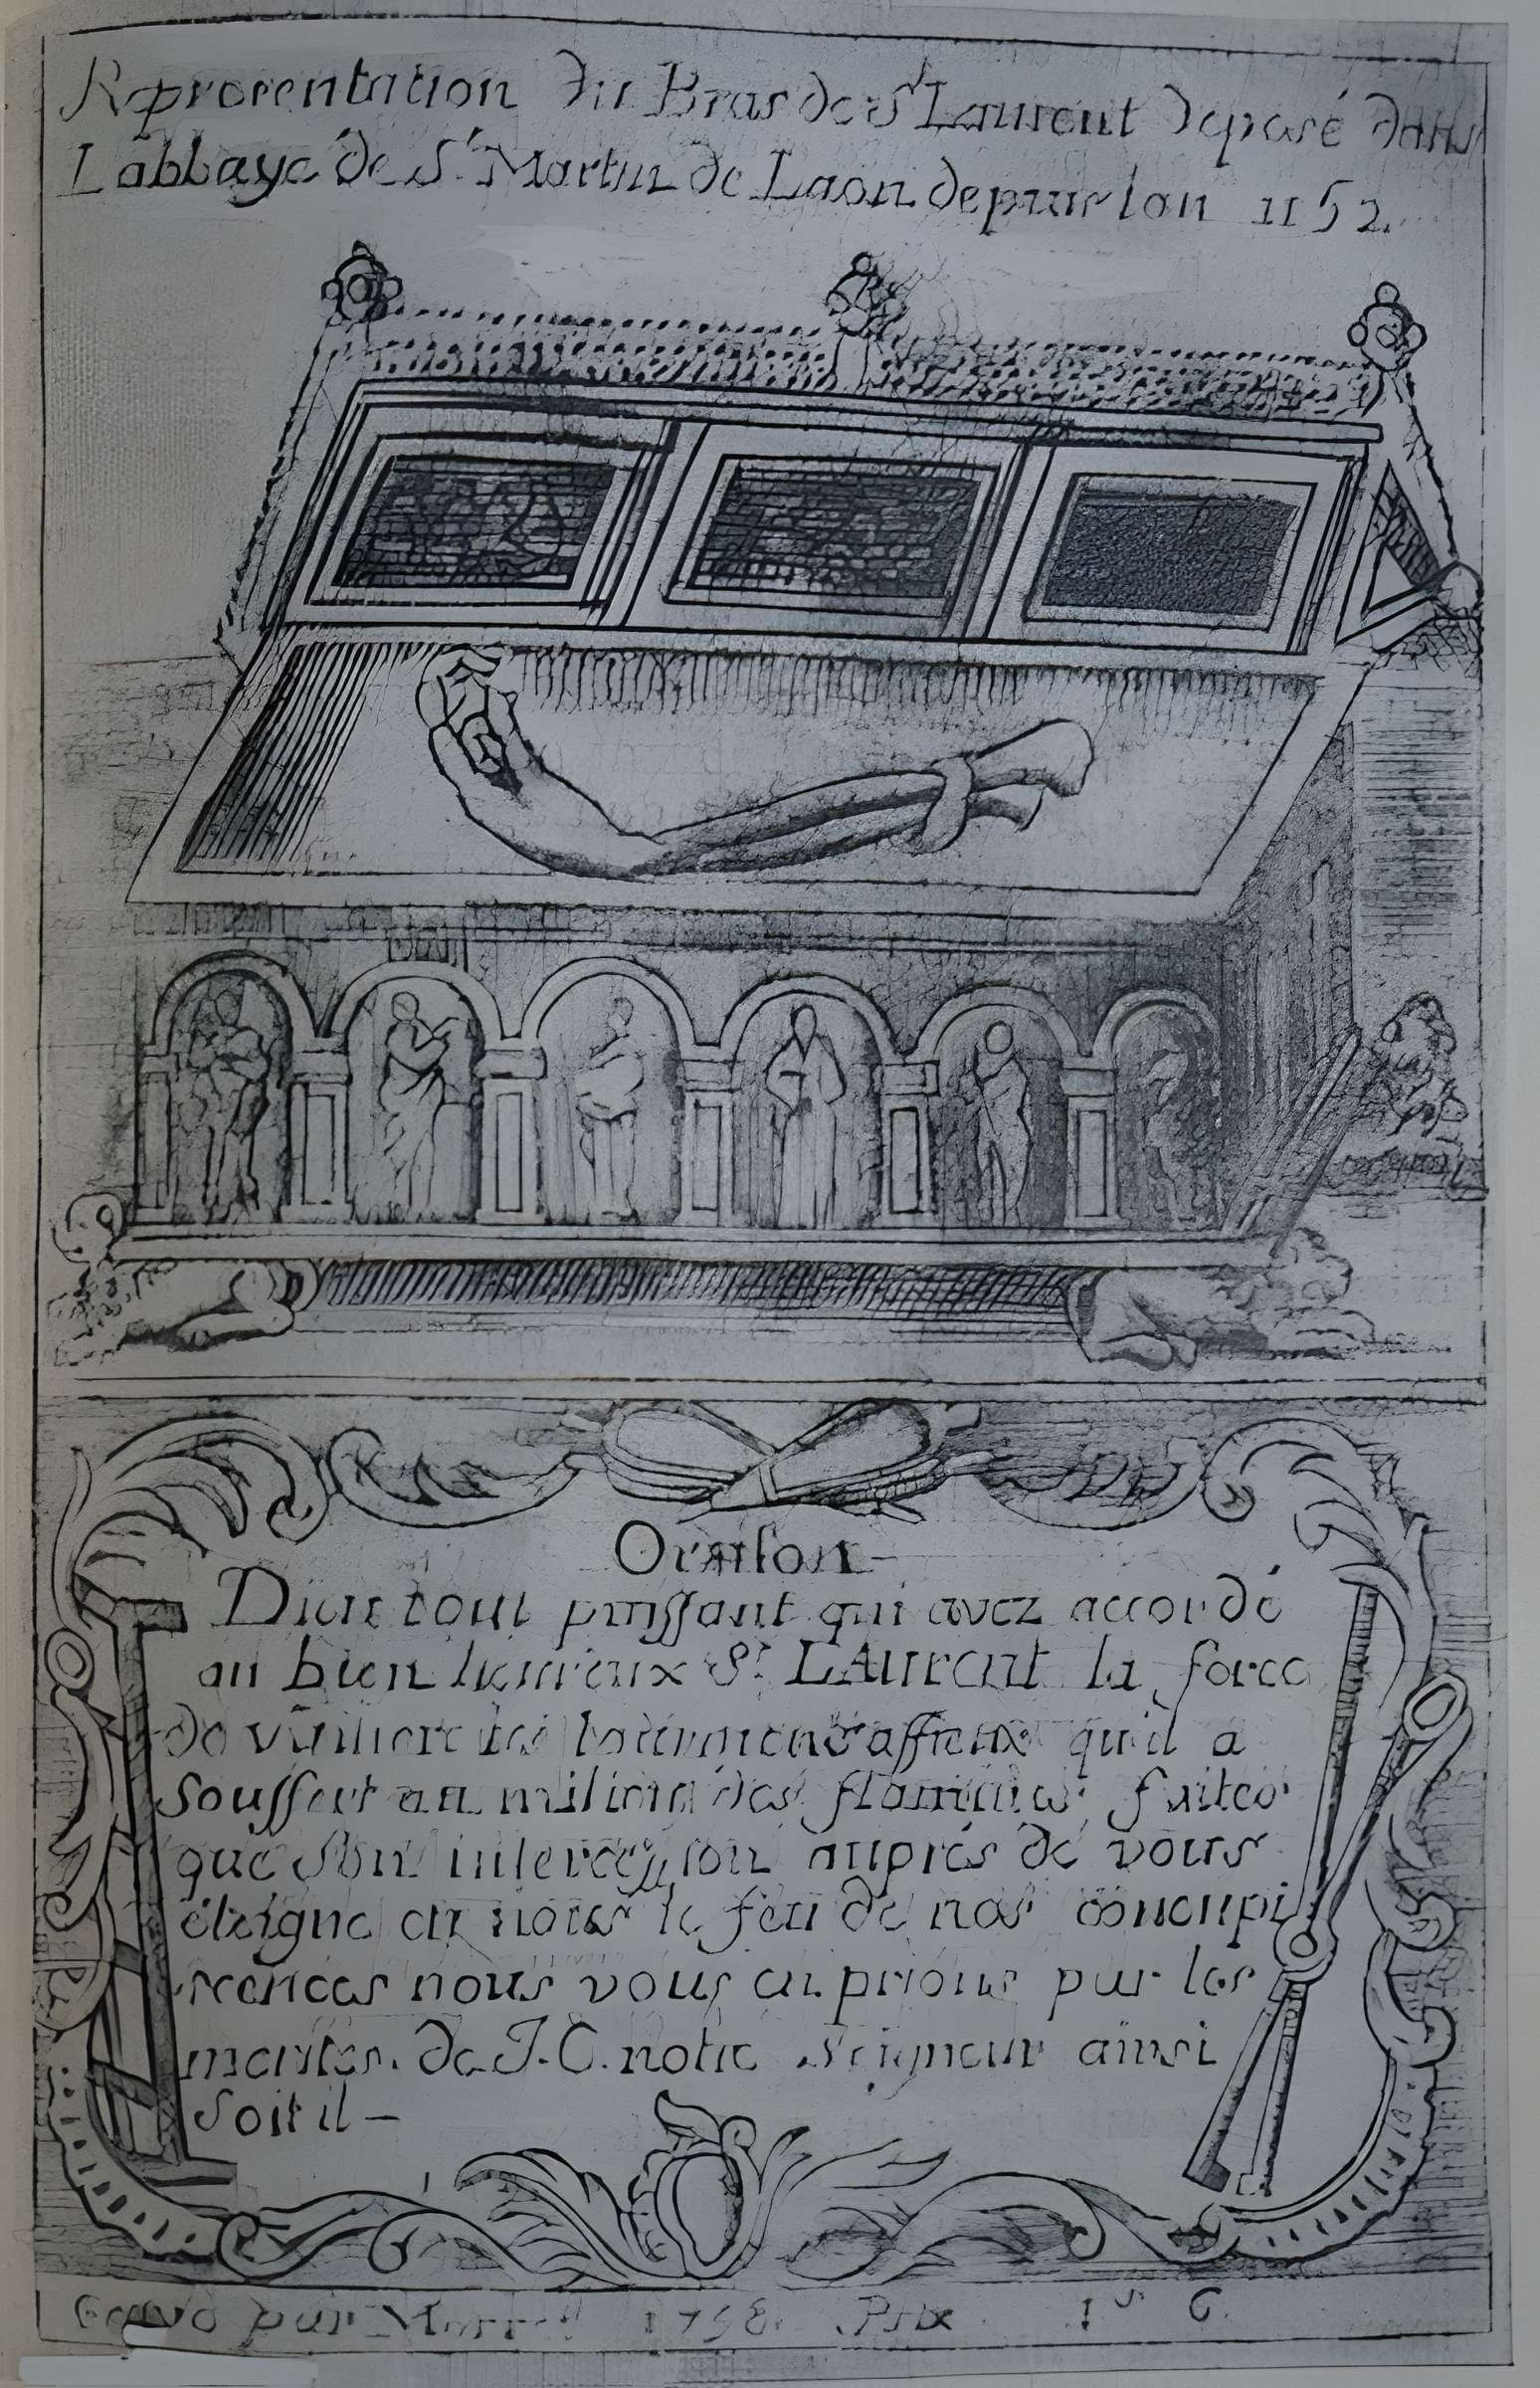 Representation du Bras de St Laurent deposé dans
Labbaye de St Martin de Laon depuis lan 1152.
Oraison
Dieu tout puissant qui avez accordé
au bien heureux St LAurent la force
de les tourmens affreux qu'il a
souffert au milieu des flammes faites
que son intercession auprés de vous
éteigne en nous le feu de nos concupi
scences nous vous en prions par les
merites de J.C. notre seigneur ainsi
soit il
par 1758 Prix 1s 6.